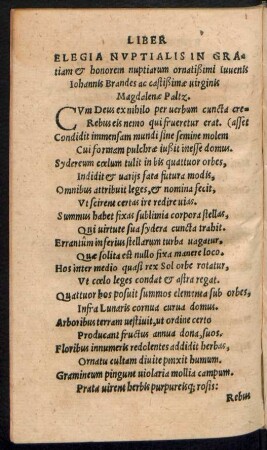 LIBER
ELEGIA NVPTIALIS IN GRA-
tiam & honorem nuptiarum ornatißimi Iuvenis
Iohannis Brandes ac castißimæ virginis
Magdalenæ Paltz.
CVm Deus ex nihilo per verbum cuncta cre-
Rebus eis nemo qui frueretur erat. (asset
Condidit immensam mundi sine semine molem
Cui formam pulchræ iußit inesse domus.
Sydereum cœlum tulit in bis quattuor orbes,
Indidit & varijs fata futura modis,
Omnibus attribuit leges, & nomina fecit,
Vt scirent certas ire redire vias.
Summus habet fixas sublimia corpora stellas,
Qui virtute sua sydera cuncta trahit.
Errantûm inferius stellarum turba vagatur,
Quæ solita est nullo fixa manere loco.
Hos inter medio quasi rex Sol orbe rotatur,
Vt cœlo leges condat & astra regat.
Quattuor hos posuit summos elementa sub orbes,
Infra Lunaris cornua curua domus.
Arboribus terram vestiuit, ut ordine certo
Producant fructus annua dona, suos.
Floribus innumeris redolentes addidit herbas,
Ornatu cultam diuite pinxit humum.
Gramineum pingunt uiolaria mollia campum.
Prata uirent herbis purpureisq; rosis:
Rebus